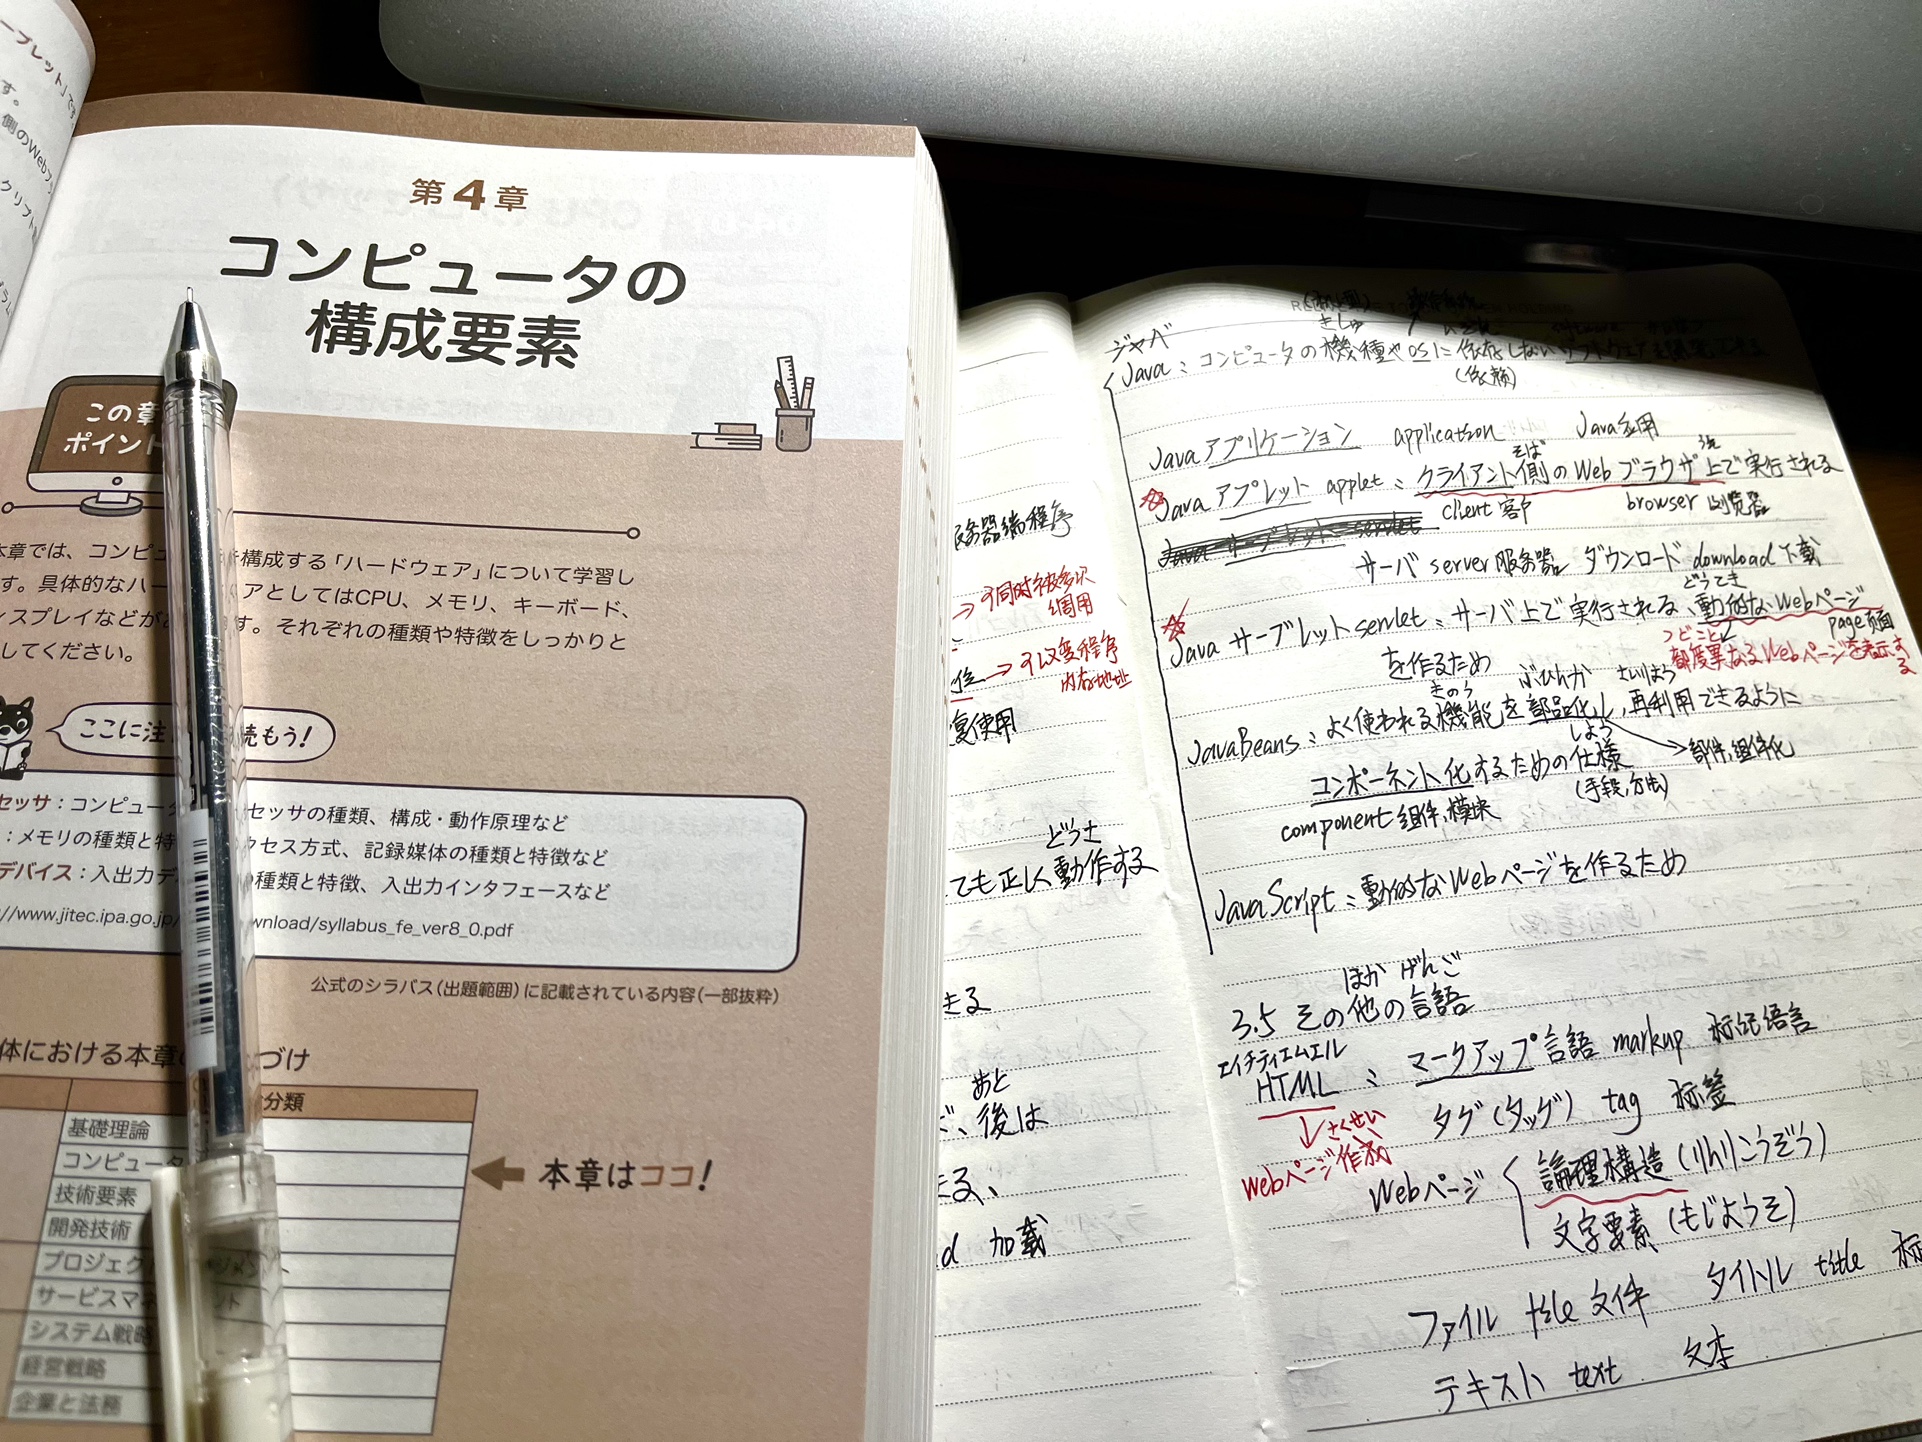 ーブレット」で
す。
側のWebブラ
クリプトを
第4章
コンピュータの
構成要素
この章
ポイント
本章では、コンピュ を構成する「ハードウェア」について学習し
す。具体的なハー ェアとしてはCPU、メモリ、キーボード、
ィスプレイなどが ます。それぞれの種類や特徴をしっかりと
してください。
ここに注 読もう!
セッサ:コンピュータ セッサの種類、構成・動作原理など
:メモリの種類と特 クセス方式、記録媒体の種類と特徴など
デバイス:入出力デ の種類と特徴、入出力インタフェースなど
//www.jitec.ipa.go.jp/ wnload/syllabus_fe_ver8_0.pdf
公式のシラバス(出題範囲)に記載されている内容(一部抜粋)
体における本章の づけ
分類
基礎理論
コンピュータ
技術要素
開発技術
プロジェクト
サービスマネ ント
システム戦略
経営戦略
企業と法務
本章はココ!
服务器端程序
→可同时被多次
调用
→可改变程序
内存地址
复使用
どうさ
ても正しく動作する
きる
あと
後は
まる、
d 加载
ジャバ
きしゅ
Java:コンピュータの機種やOSに依存しないソフトウェアを
(依赖)
Javaアプリケーション application Java应用
そば うえ
☆Javaアプレット applet:クライアント側のWebブラウザ上で実行される
client 客户 browser 浏览器
Java サーブレット servlet
サーバ server 服务器 ダウンロード download 下载
どうてき
☆Javaサーブレット servlet:サーバ上で実行される、動的なWebページ
page 页面
つどこと
都度異なるWebページを表示する
を作るため
きのう ぶひんか さいりよう
JavaBeans:よく使われる機能を部品化し,再利用できるように
→部件,组件化
しよう
コンポーネント化するための仕様
(手段,方法)
component 组件,模块
JavaScript:動的なWebページを作るため
ほか げんご
3.5 その他の言語
エイチティエムエル
HTML:マークアップ言語 markup 标记语言
タグ(タッグ) tag 标签
↓さくせい
Webページ作成
Webページ
論理構造(りんりこうぞう)
文字要素(もじようそ)
ファイル file 文件 タイトル title 标
テキスト text 文本